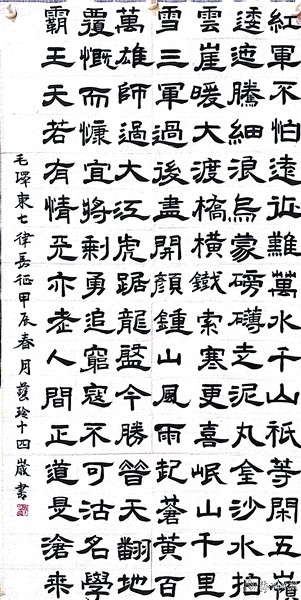 紅軍不怕遠征難萬水千山祇等閑五嶺
逶迤騰細浪烏蒙磅礴走泥丸金沙水拍
雲崖暖大渡橋橫鐵索寒更喜岷山千里
雪三軍過後盡開顏鍾山風雨起蒼黃百
萬雄師過大江虎踞龍盤今勝昔天翻地
覆慨而慷宜將剩勇追窮寇不可沽名學
霸王天若有情天亦老人間正道是滄桑
毛澤東七律長征甲辰春月十四歲書